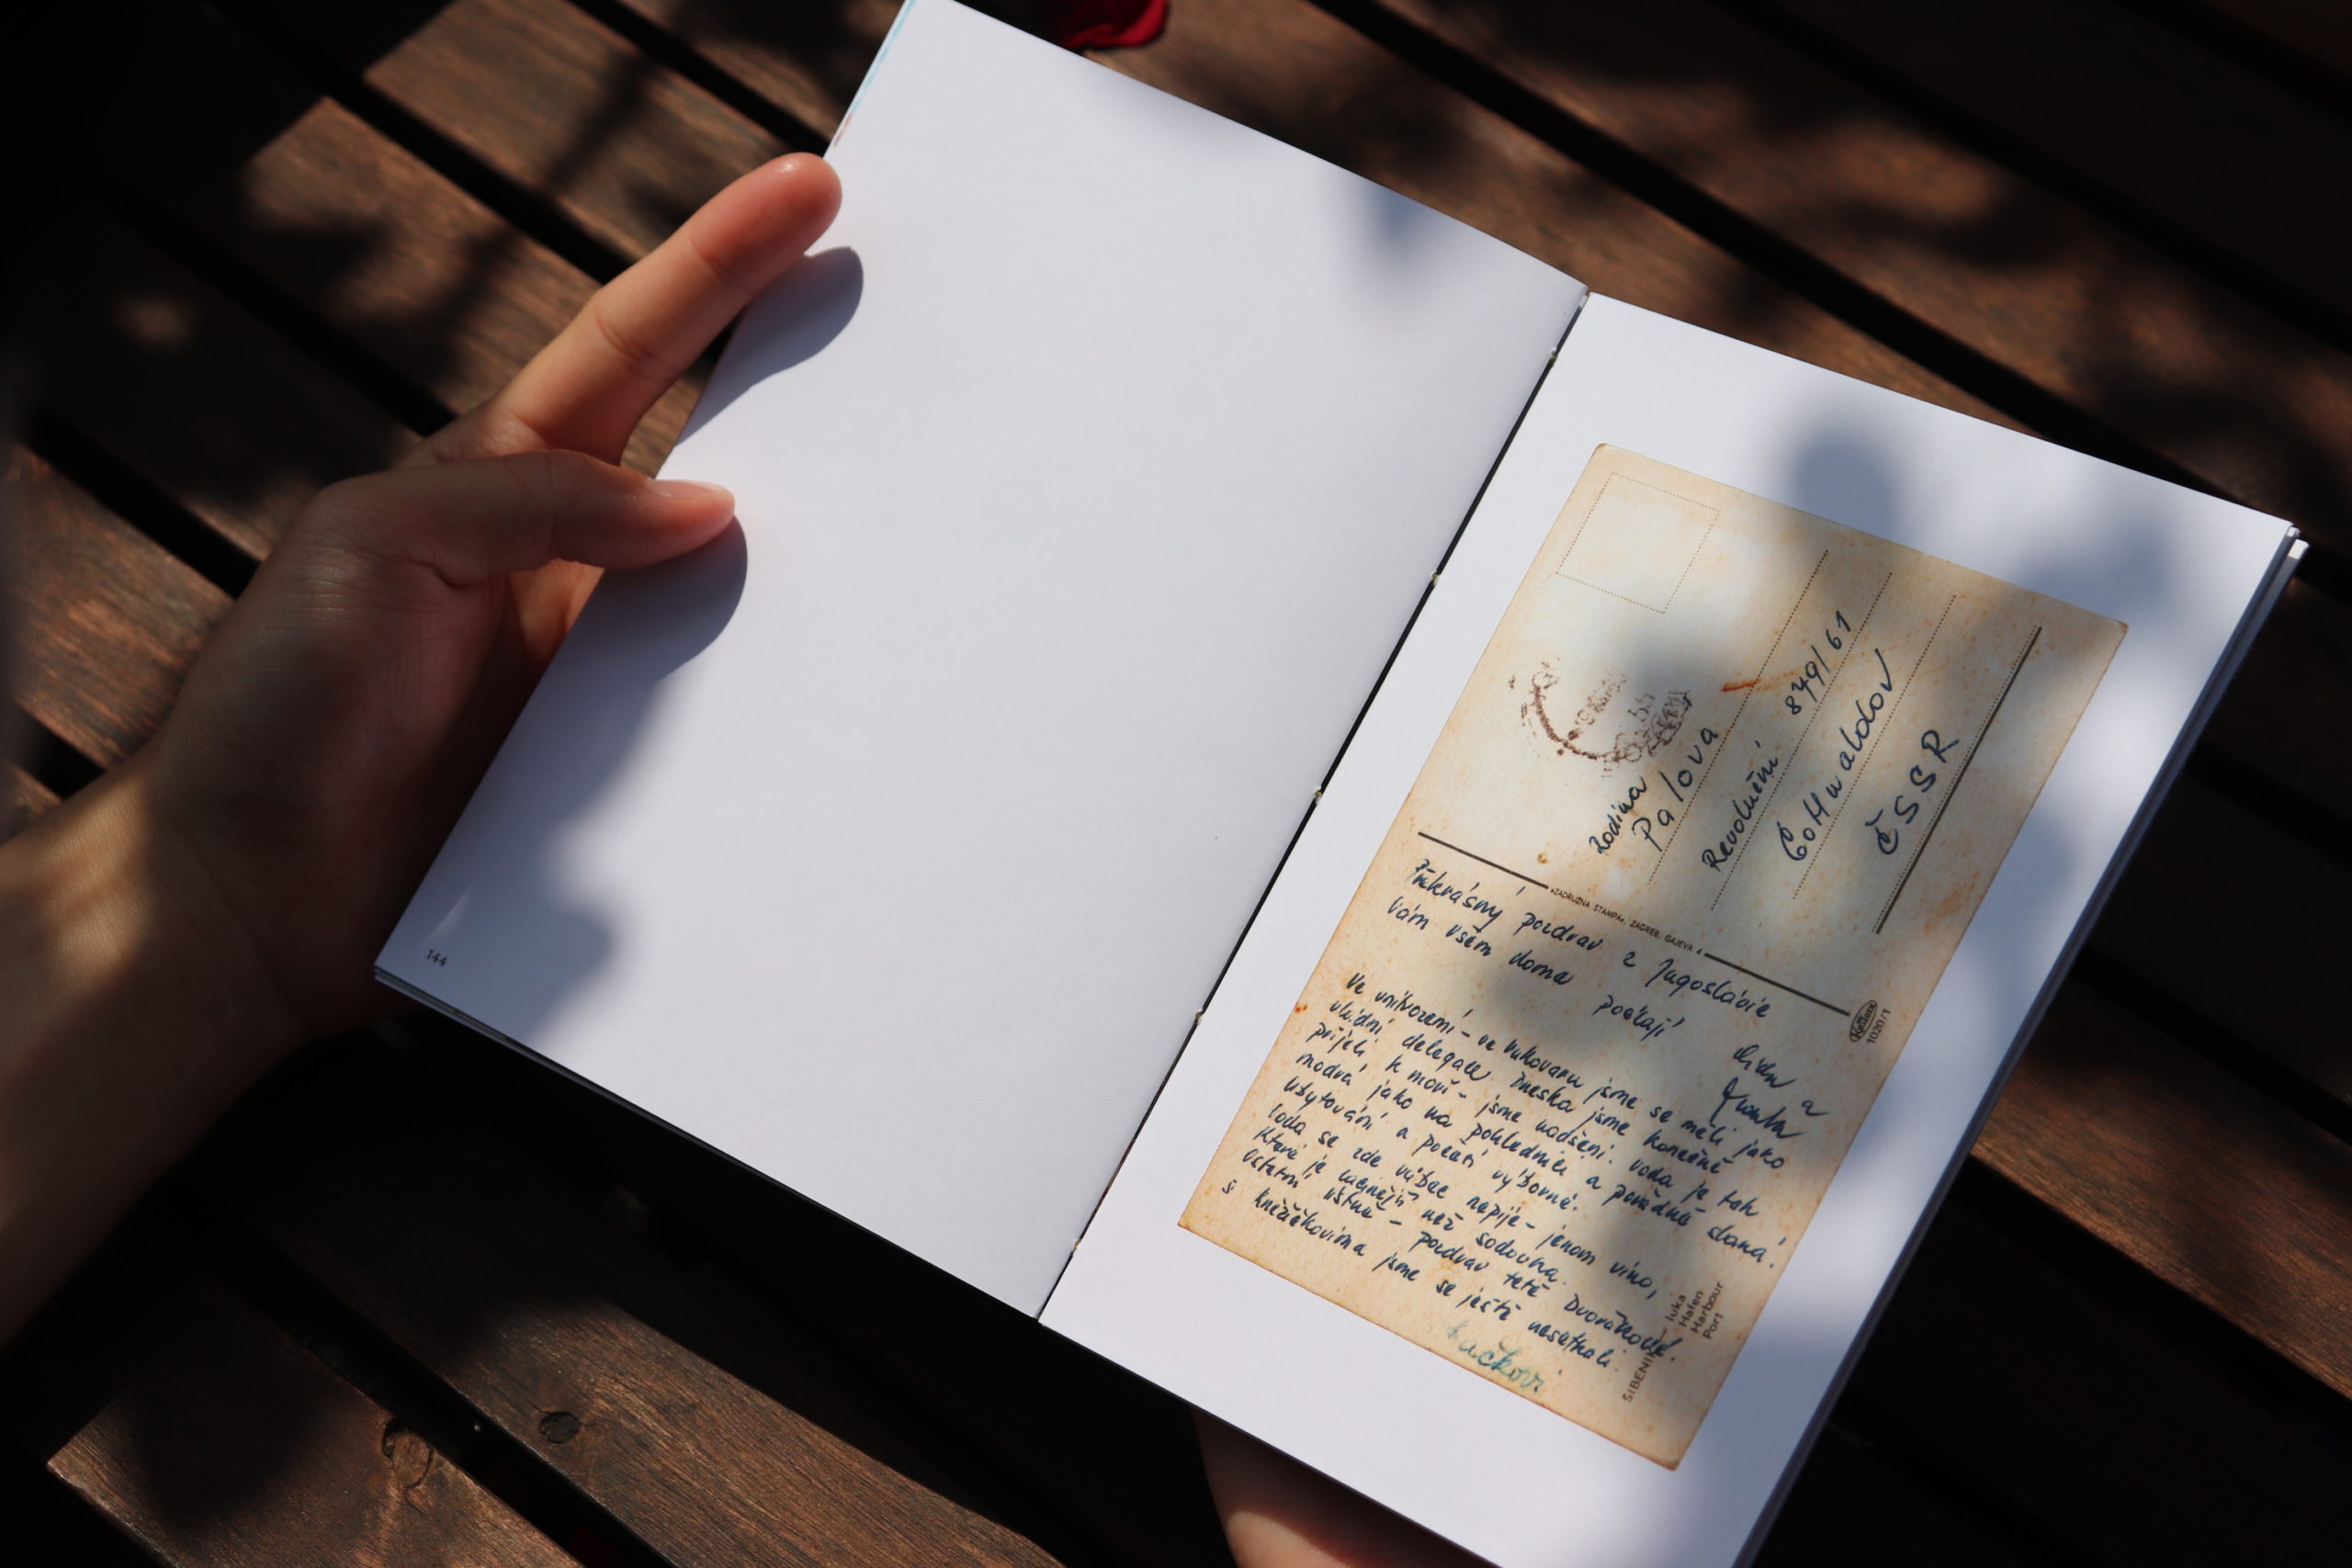 144
Rodina
Palova
Revoluční 879/61
ČSSR
»ZADRUŽNA ŠTAMPA«, ZAGREB, GAJEVA 4
1020/1
Překrásný pozdrav z Jugoslávie
Vám všem doma posílají
a
Ve vnitrozemí - ve Vukovaru jsme se měli jako
vládní delegace. Dneska jsme konečně
přijeli k moři - jsme nadšeni. Voda je tak
modrá jako na pohlednici a pořádně slaná!
Ubytování a počasí výborné.
Voda se zde vůbec nepije - jenom víno,
které je lacinější než sodovka.
Ostatní ústně - pozdrav tetě Dvořákové.
s Kněžíčkovima jsme se ještě nesetkali.
ŠIBENIK
luka
Hafen
Harbour
Port